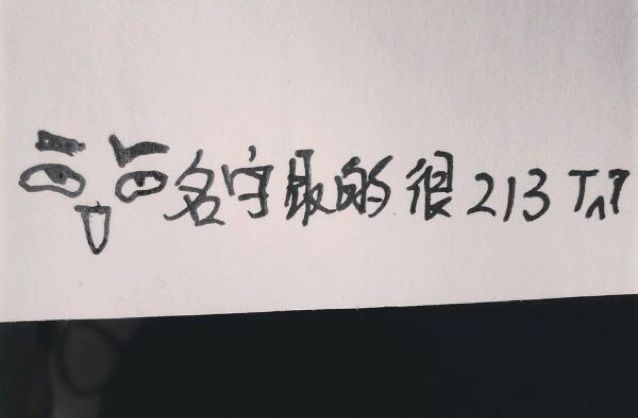 名字取的很213